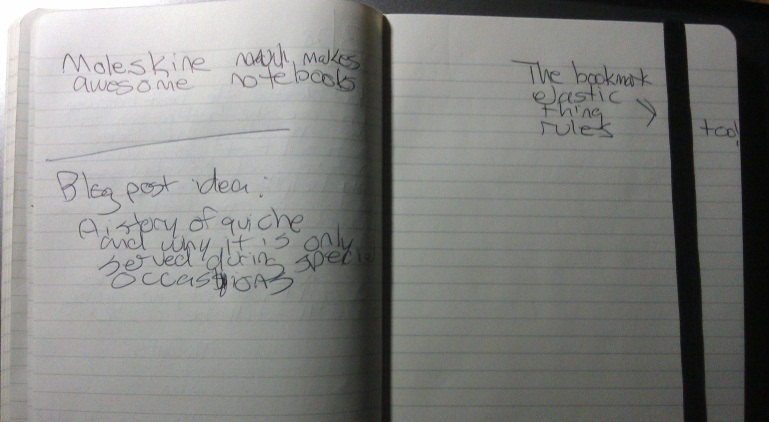 Moleskine really makes
awesome notebooks
Blog post idea:
A story of quiche
and why it is only
served during special
occassions
The bookmark
elastic
thing
rules
too!